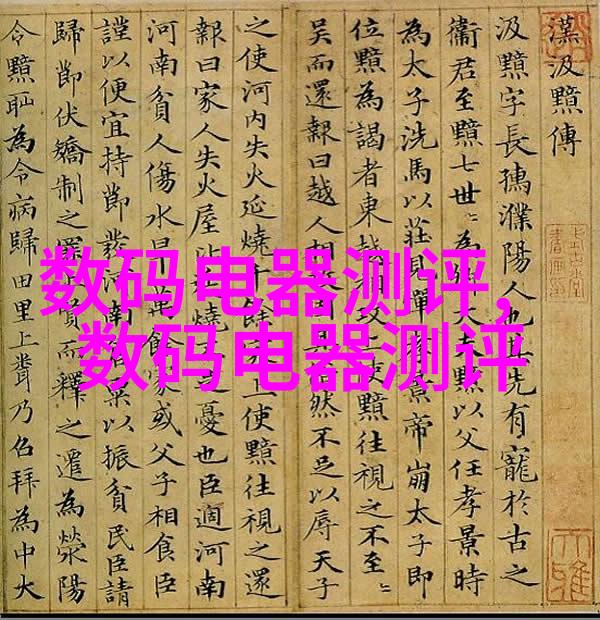 漢汲黯傳
汲黯字長孺濮陽人也其先有寵於古之
衞君至黯七世〻為卿大夫黯以父任孝景時
為太子洗馬以莊見憚孝景帝崩太子即
位黯為謁者東越相攻上使黯往視之不至〻
吳而還報曰越人相攻然不足以辱天子
之使河内失火延燒千餘家上使黯往視之還
報曰家人失火屋比延燒憂也臣過河南
河南貧人傷水旱萬餘家或父子相食臣
謹以便宜持節發河南倉粟以振貧民臣請
歸節伏矯制之罪上賢而釋之遷為滎陽
令黯恥為令病歸田里上聞乃召拜為中大
数码电器测评,
数码电器测评